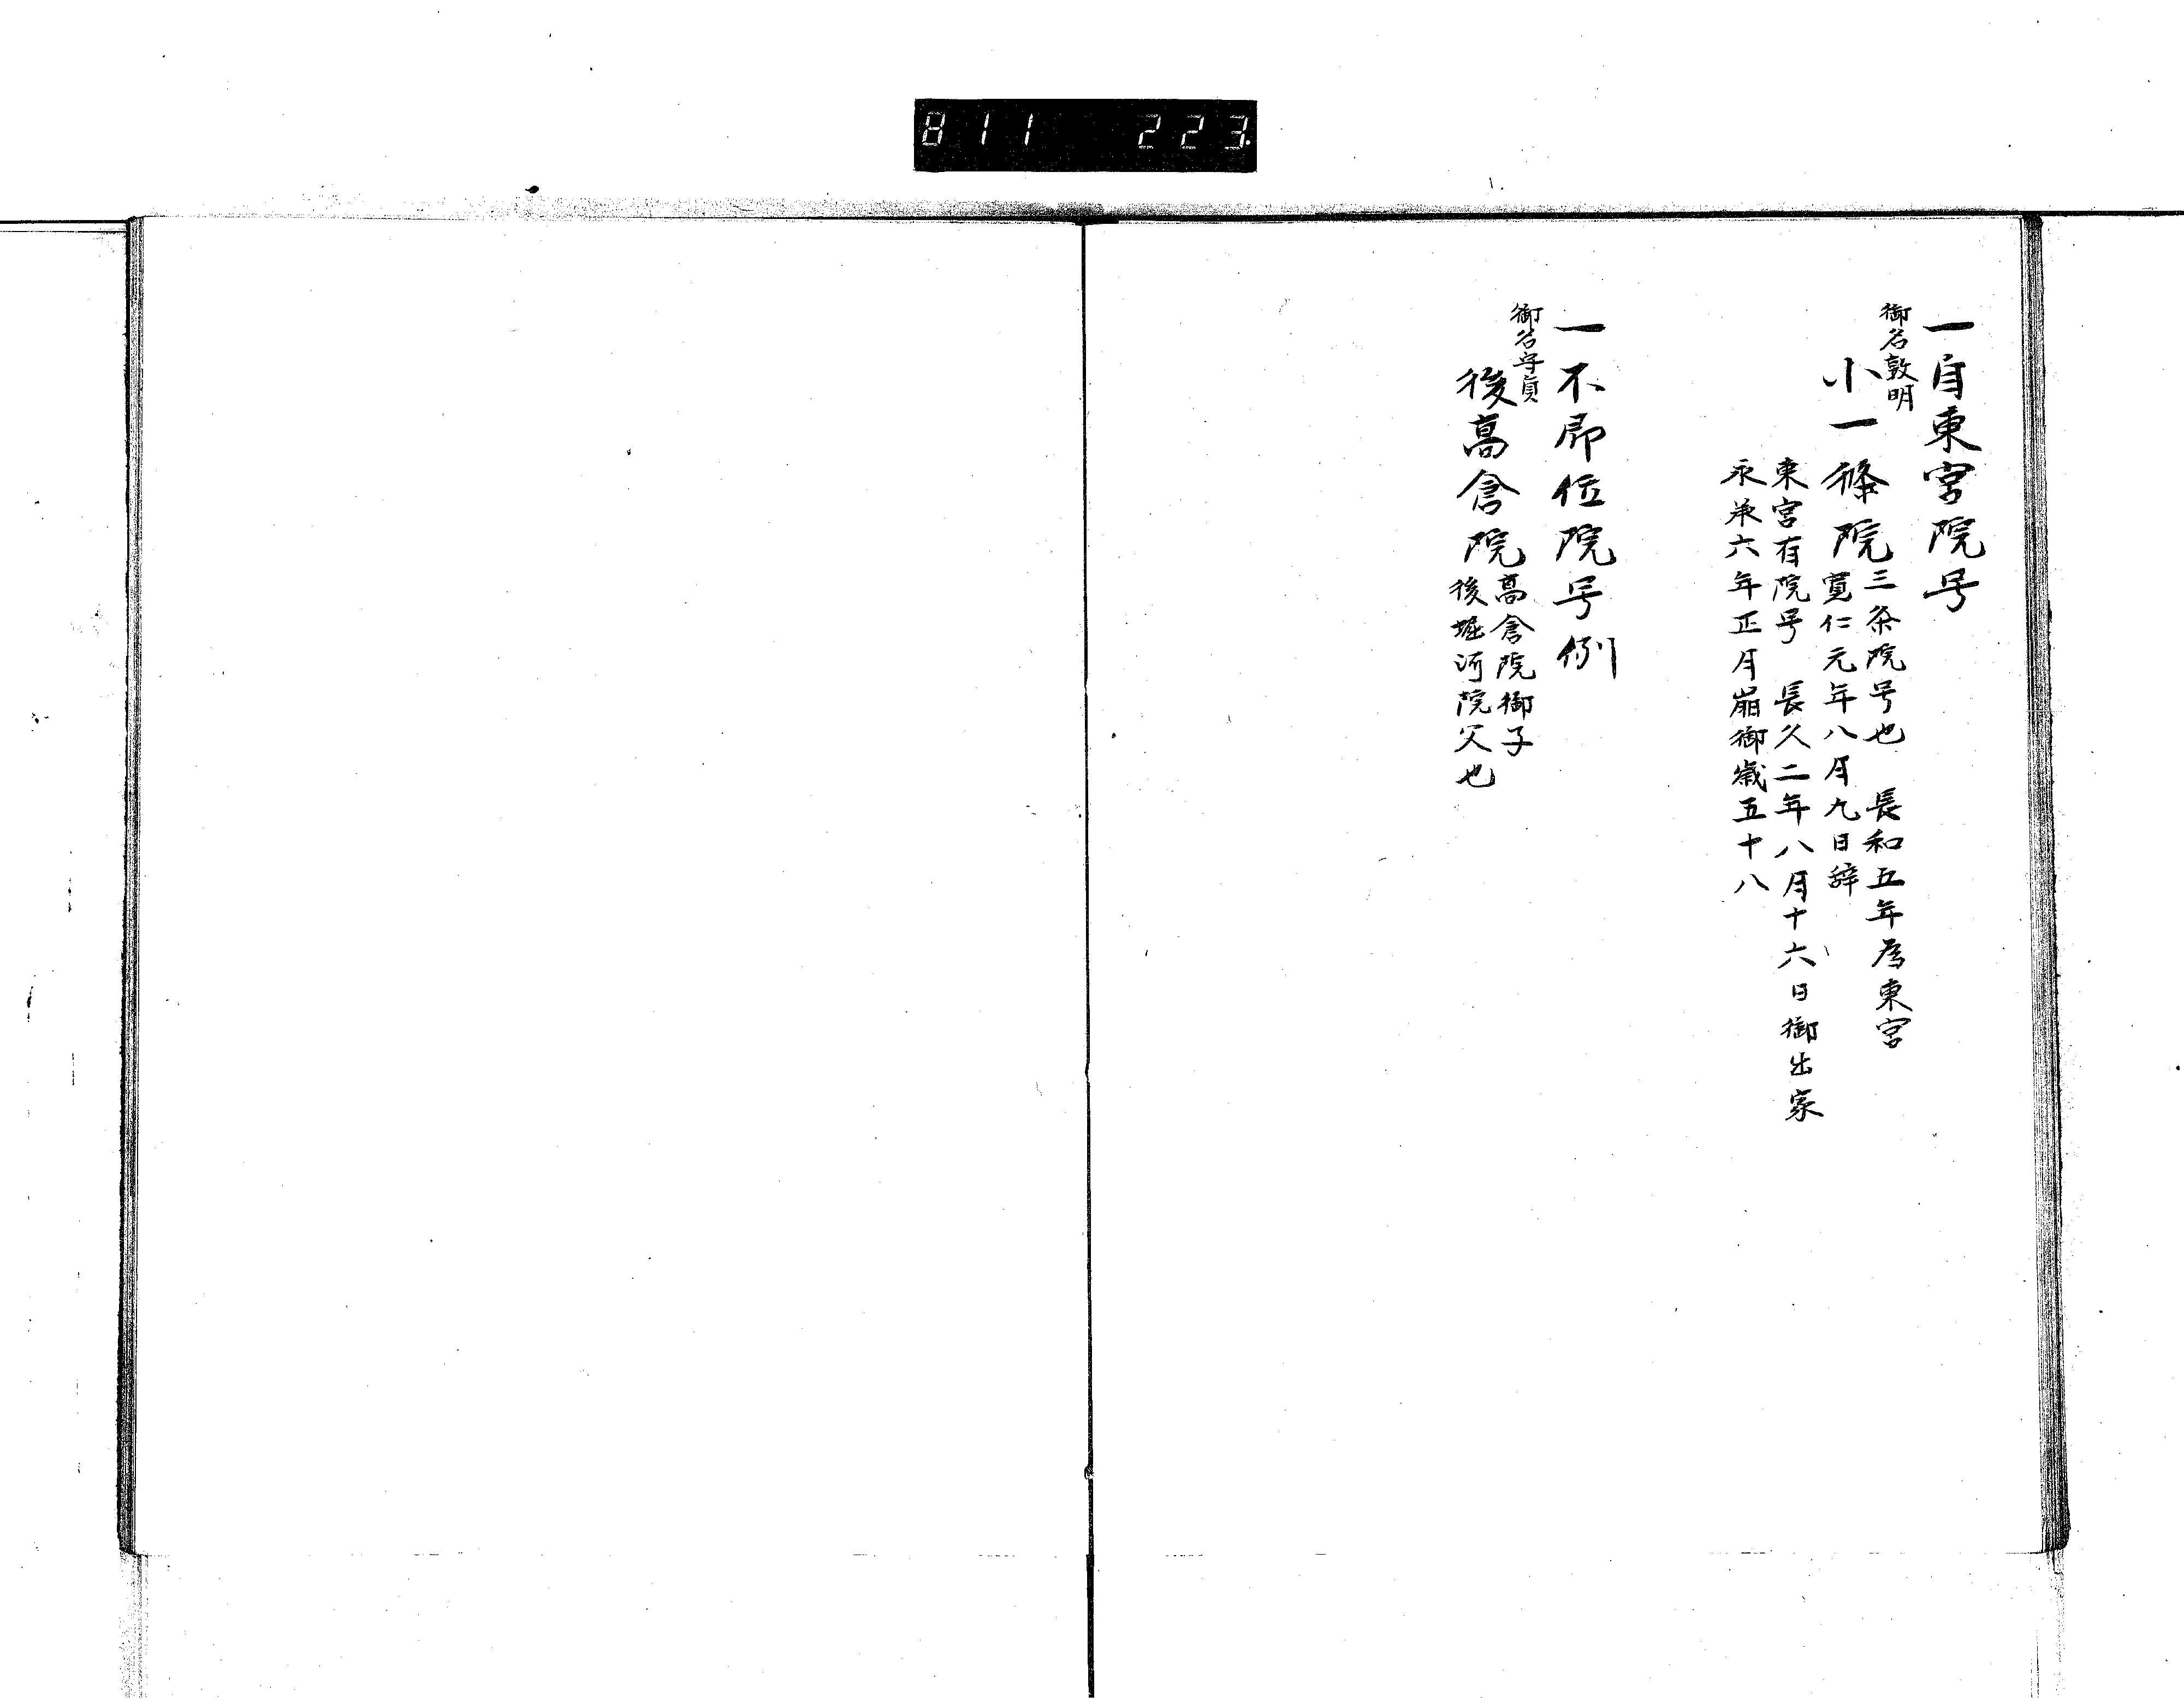 811 223
一自東宮院号
御名敦明
小一條院
三条院号也 長和五年為東宮
寛仁元年八月九日辞
東宮有院号 長久二年八月十六日御出家
永承六年正月崩御歳五十八
一不即位院号例
御名守貞
後高倉院
高倉院御子
後堀河院父也